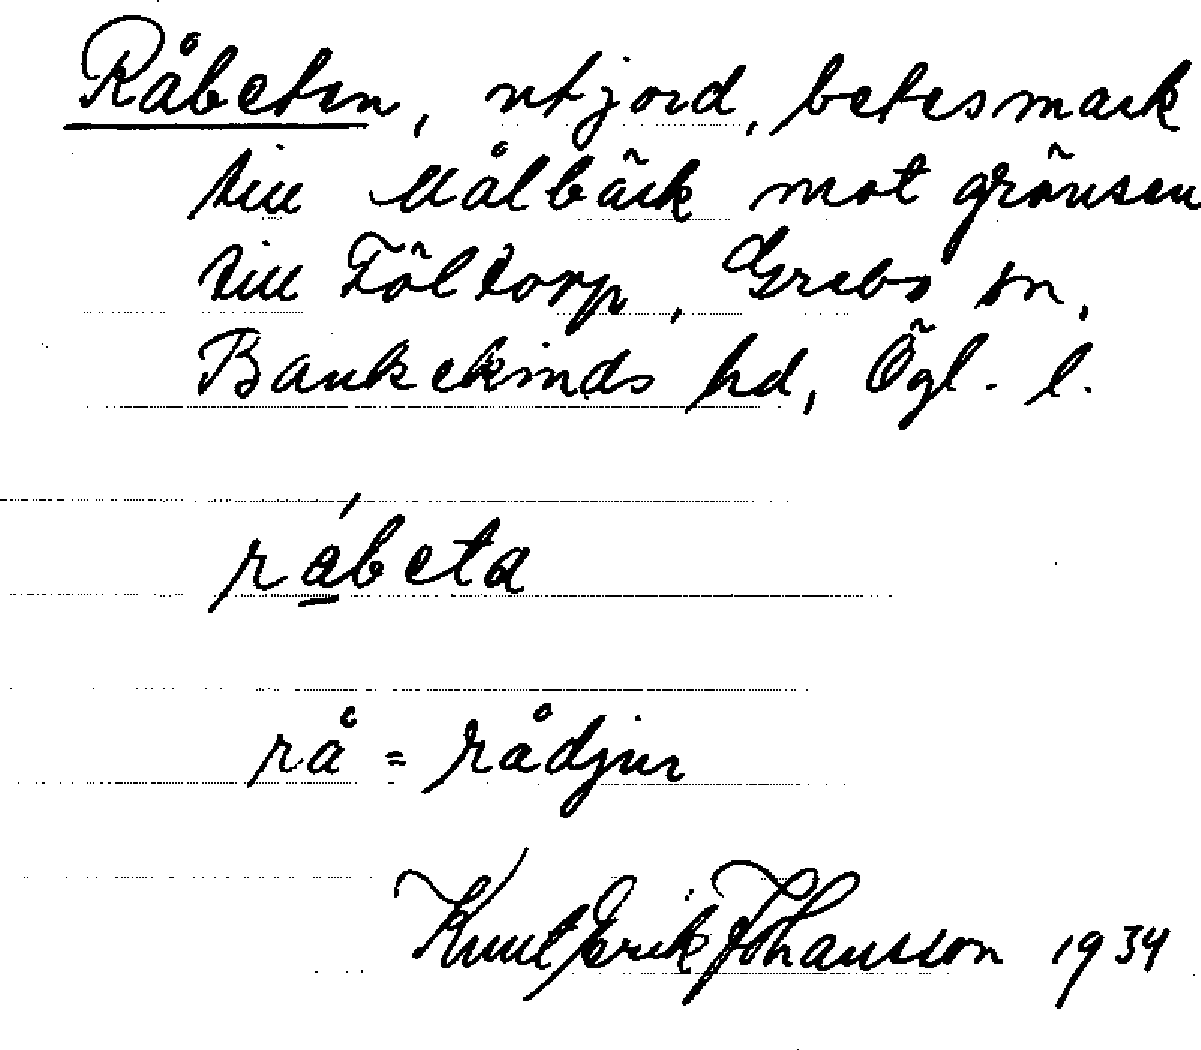 Råbeten, utjord, betesmark
till Målbäck mot gränsen
till Föltorp, Grebo sn,
Bankekinds hd, Ögl. l.
rábeta
rå = rådjur
Knut Erik Johansson 1934